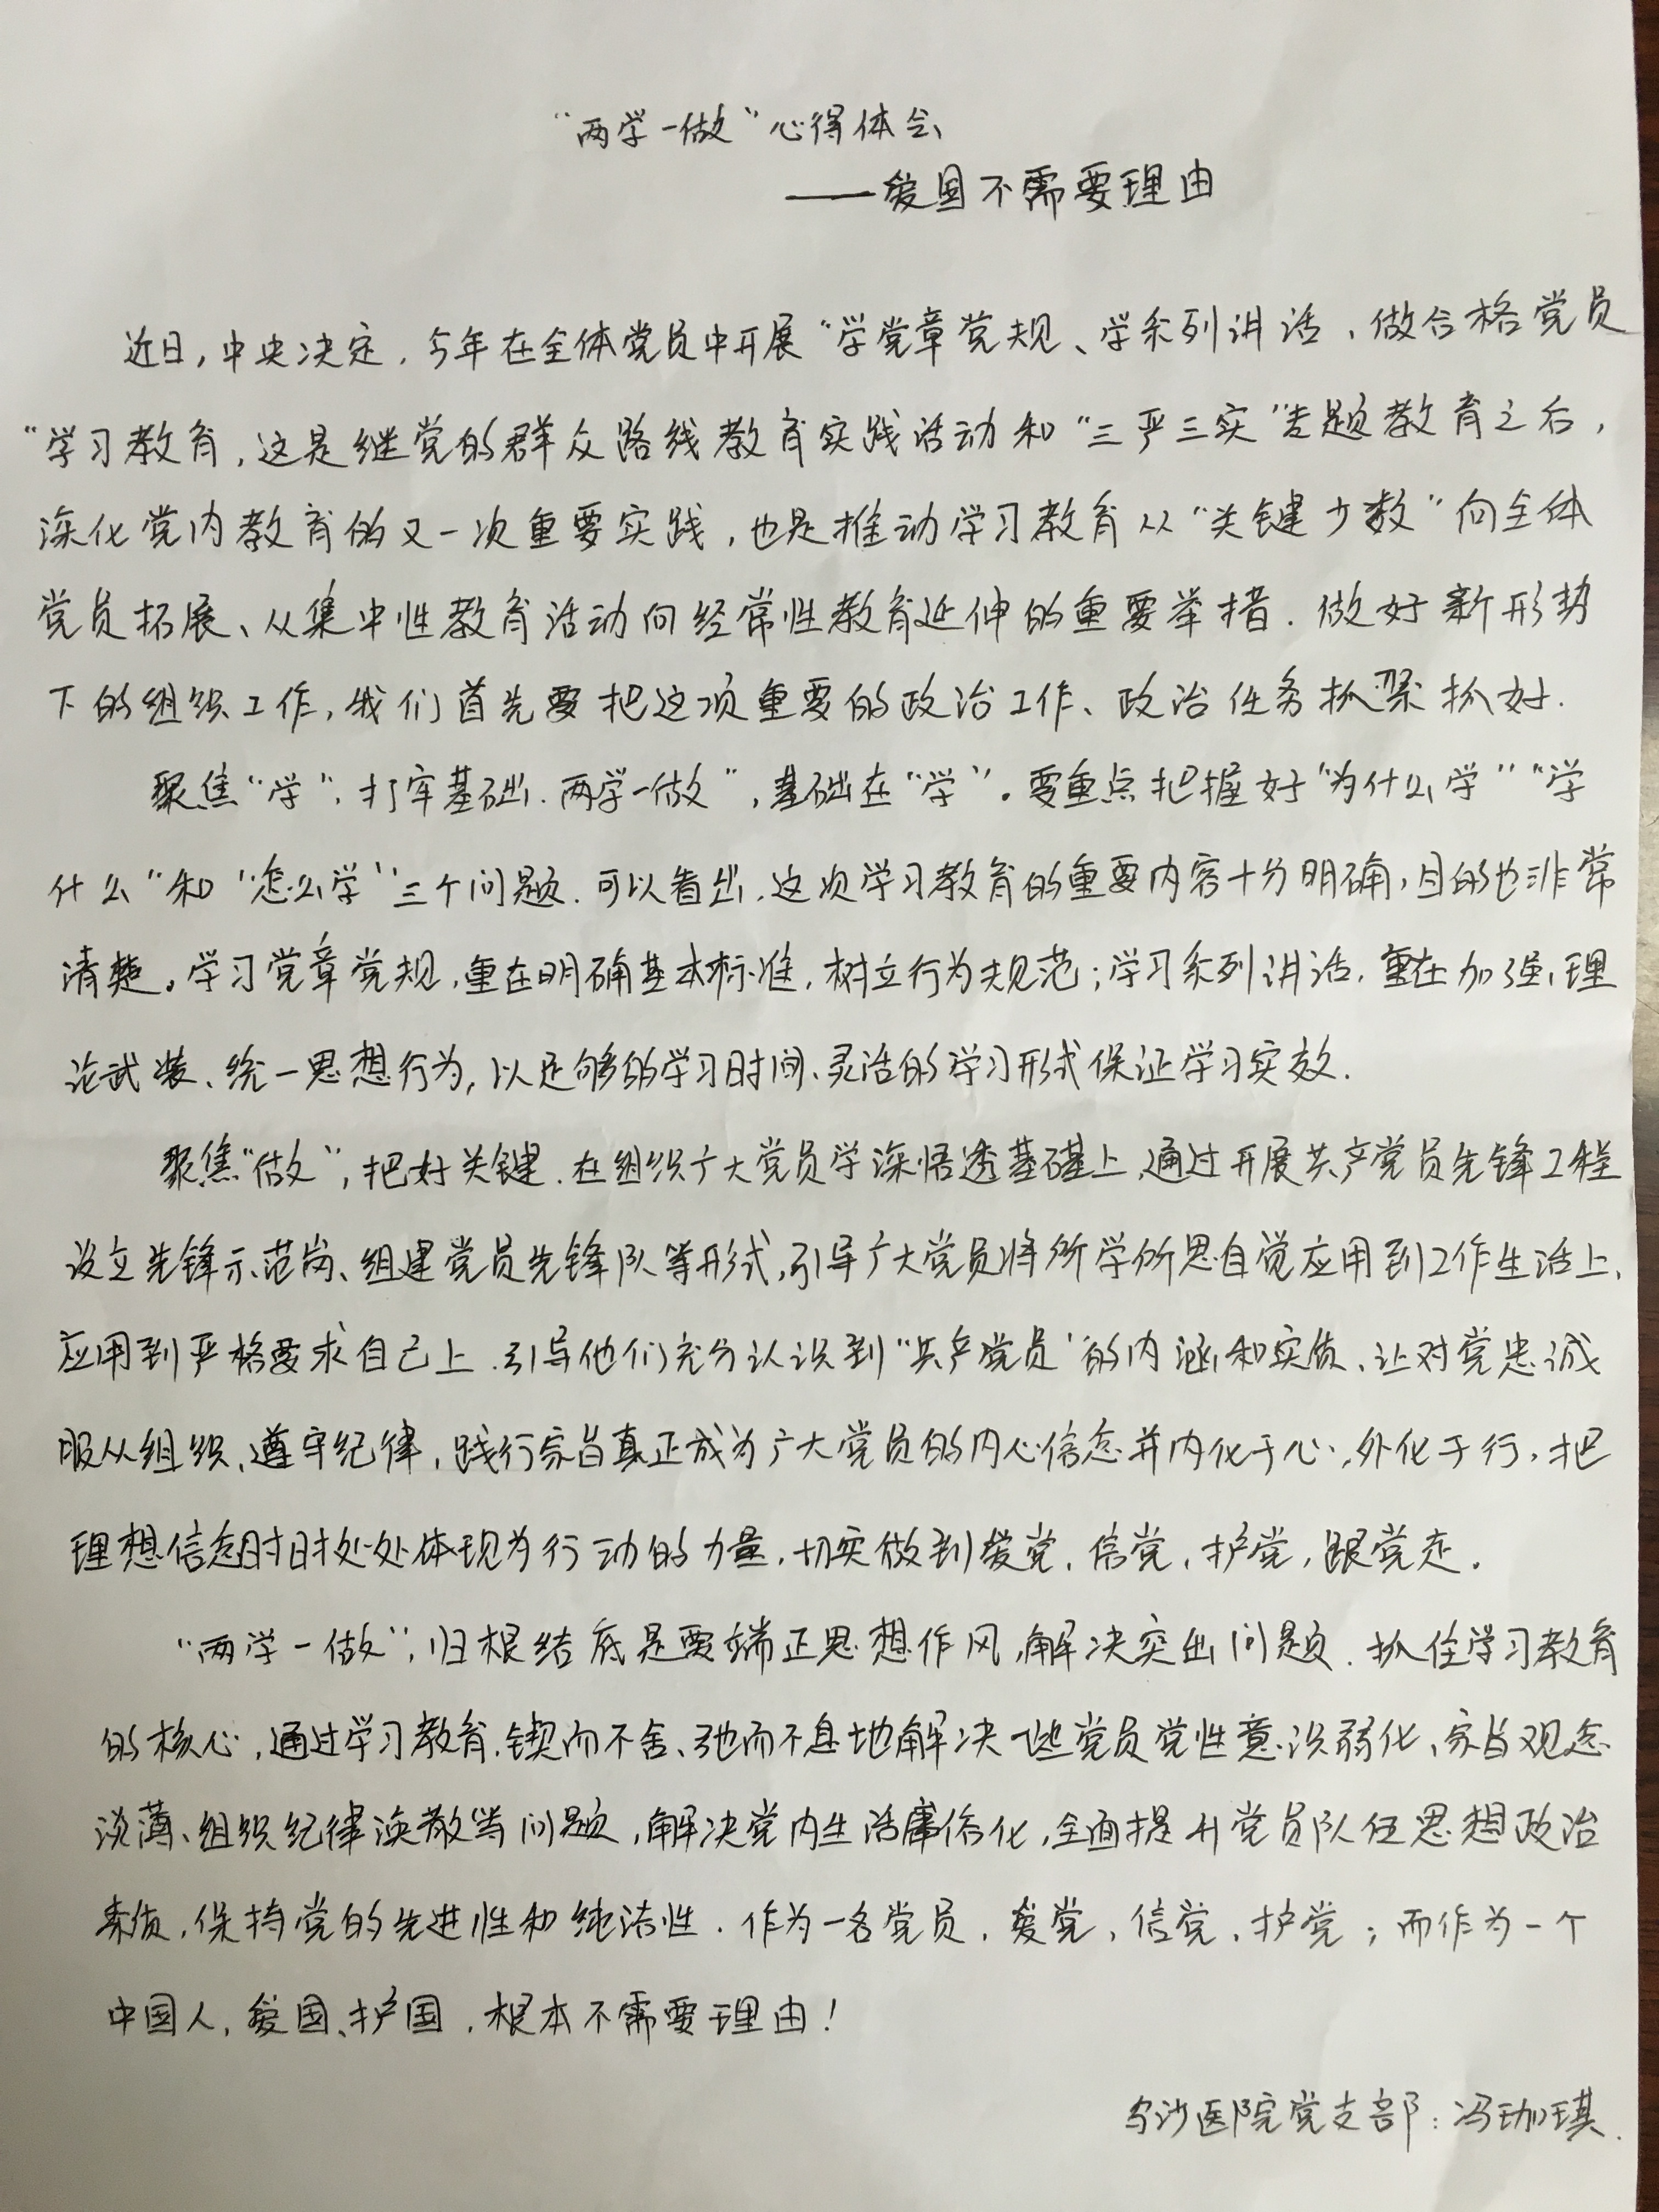 “两学一做”心得体会
——爱国不需要理由
近日,中央决定,今年在全体党员中开展“学党章党规、学系列讲话、做合格党员
“学习教育,这是继党的群众路线教育实践活动和“三严三实”专题教育之后,
深化党内教育的又一次重要实践,也是推动学习教育从“关键少数”向全体
党员拓展、从集中性教育活动向经常性教育延伸的重要举措.做好新形势
下的组织工作,我们首先要把这项重要的政治工作、政治任务抓紧抓好.
聚焦“学”,打牢基础.两学一做”,基础在“学”。要重点把握好“为什么学”“学
什么”和“怎么学”三个问题.可以看出,这次学习教育的重要内容十分明确,目的也非常
清楚。学习党章党规,重在明确基本标准,树立行为规范;学习系列讲话,重在加强理
论武装、统一思想行为,以足够的学习时间、灵活的学习形式保证学习实效.
聚焦“做”,把好关键.在组织广大党员学深悟透基础上,通过开展共产党员先锋工程
设立先锋示范岗、组建党员先锋队等形式,引导广大党员将所学所思自觉应用到工作生活上、
应用到严格要求自己上.引导他们充分认识到“共产党员”的内涵和实质、让对党忠诚
服从组织、遵守纪律,践行宗旨真正成为广大党员的内心信念并内化于心,外化于行,把
理想信念时时处处体现为行动的力量,切实做到爱党,信党,护党,跟党走。
“两学一做”,归根结底是要端正思想作风,解决突出问题.抓住学习教育
的核心,通过学习教育,锲而不舍、驰而不息地解决一些党员党性意识弱化、宗旨观念
淡薄、组织纪律涣散等问题,解决党内生活庸俗化,全面提升党员队伍思想政治
素质,保持党的先进性和纯洁性.作为一名党员,爱党,信党,护党;而作为一个
中国人,爱国、护国,根本不需要理由!
乌沙医院党支部:冯珈琪.